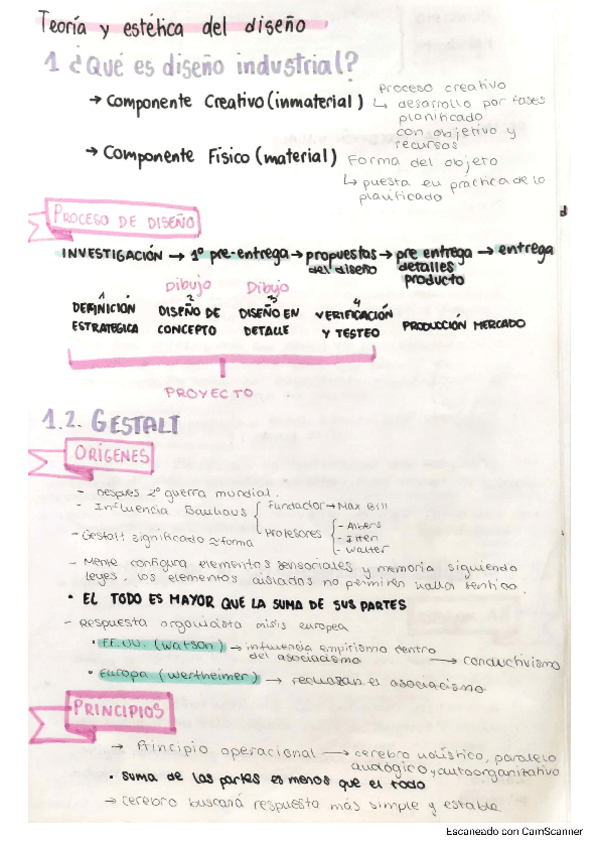 Teoría y estética del diseño
1 ¿Qué es diseño industrial?
→ Componente Creativo (inmaterial) ↳ Proceso creativo
desarrollo por fases
planificado
con objetivo y
recursos
→ Componente Físico (material) Forma del objeto
↳ puesta en práctica de lo
planificado
PROCESO DE DISEÑO
INVESTIGACIÓN → 1º pre-entrega → propuestas del diseño → pre entrega detalles y producto → entrega
Dibujo Dibujo
1 2 3 4
DEFINICIÓN DISEÑO DE DISEÑO EN VERIFICACIÓN PRODUCCIÓN MERCADO
ESTRATEGICA CONCEPTO DETALLE Y TESTEO
PROYECTO
1.2. GESTALT
ORÍGENES
- Despues 2º guerra mundial.
- Influencia Bauhaus { Fundador → Max Bill
Profesores { - Albers
- Itten
- Walter
- Gestalt significado ≈ forma
- Mente configura elementos sensoriales y memoria siguiendo
leyes, los elementos aislados no permiten
• EL TODO ES MAYOR QUE LA SUMA DE SUS PARTES
- Respuesta europea
• EE.UU. (Watson) → influencia empitismo dentro
del asociacismo → conductivismo
• Europa (Wertheimer) → rechazan el asociacismo
PRINCIPIOS
→ Principio operacional → cerebro holístico, paralelo
analógico y autoorganitativo
• SUMA de las partes es menos que el todo
→ cerebro buscará respuesta más simple y estable
Escaneado con CamScanner